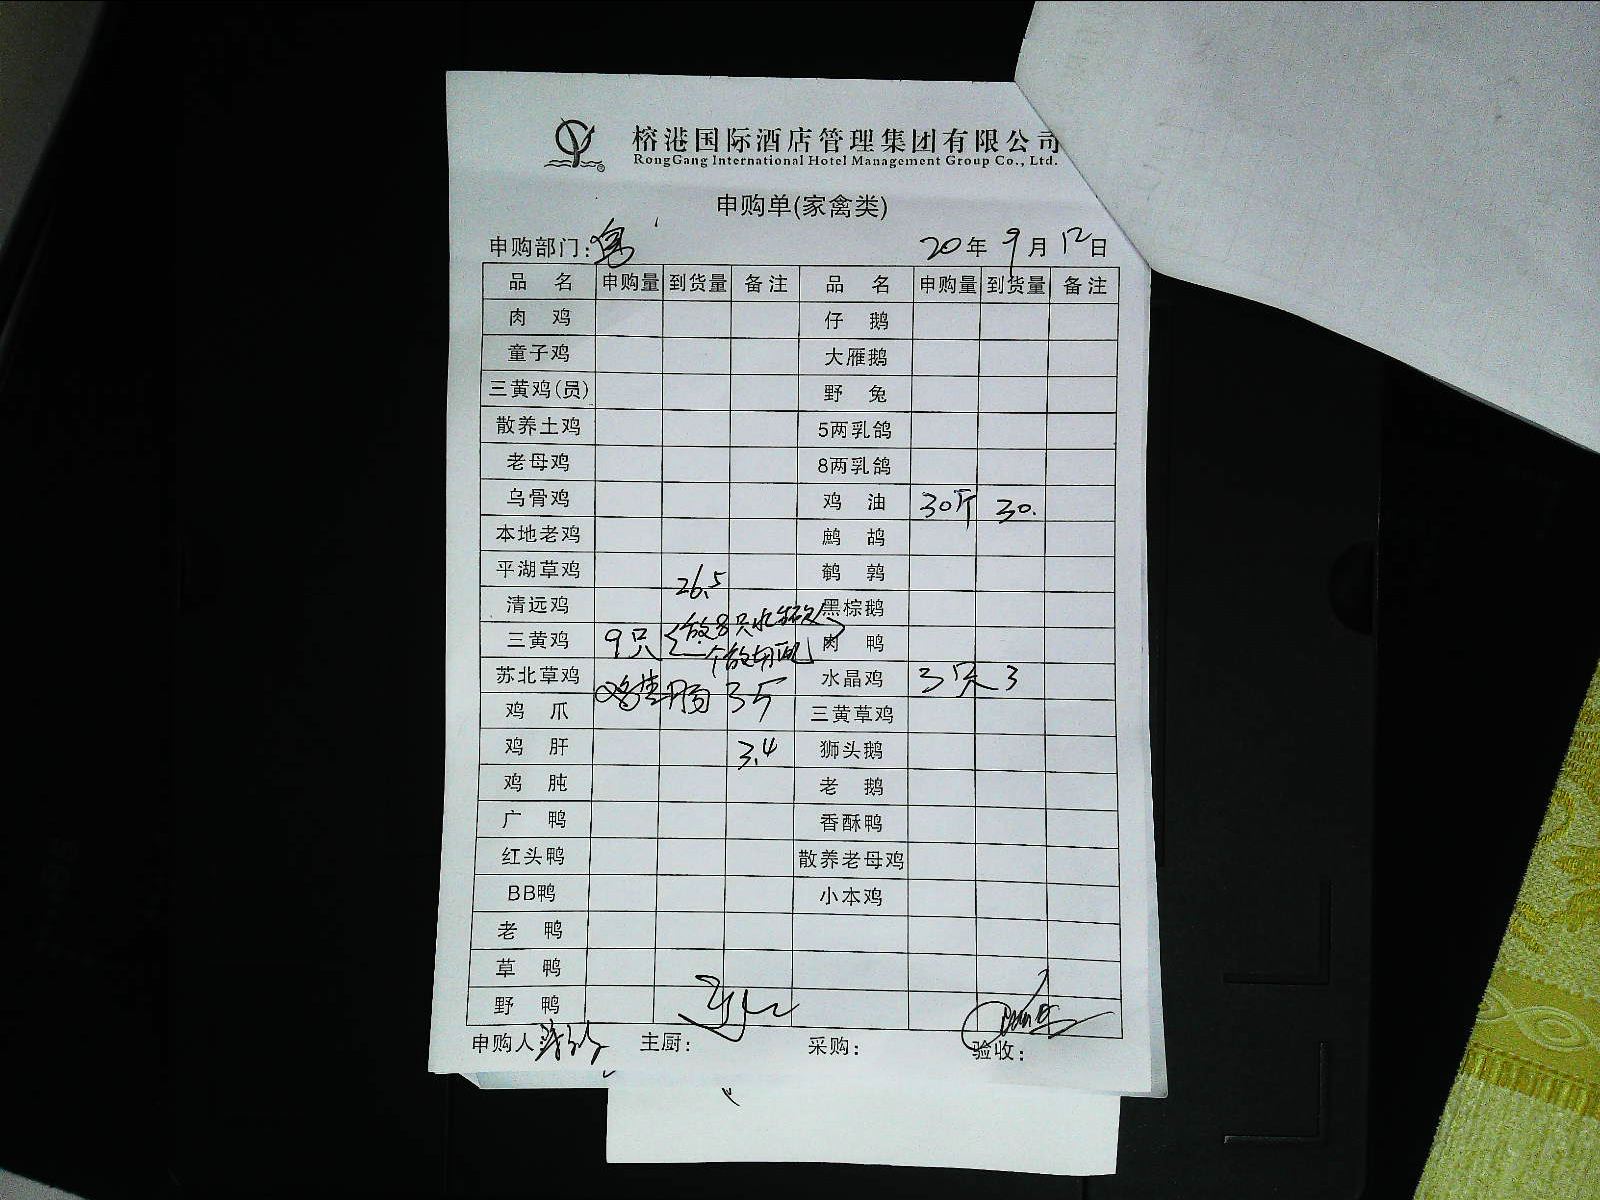 榕港国际酒店管理集团有限公司
RongGang International Hotel Management Group Co., Ltd.
申购单(家禽类)
申购部门: 20年9月12日
品名 申购量 到货量 备注 品名 申购量 到货量 备注
肉鸡 仔鹅
童子鸡 大雁鹅
三黄鸡(员) 野兔
散养土鸡 5两乳鸽
老母鸡 8两乳鸽
乌骨鸡 鸡油 30斤 30.
本地老鸡 鹧鸪
平湖草鸡 鹌鹑
26.5
清远鸡 黑棕鹅
三黄鸡 9只 肉鸭
苏北草鸡 水晶鸡 3只 3
鸡 肠 3斤
鸡爪 三黄草鸡
鸡肝 3.4 狮头鹅
鸡肫 老鹅
广鸭 香酥鸭
红头鸭 散养老母鸡
BB鸭 小本鸡
老鸭
草鸭
野鸭
申购人 主厨: 采购: 验收: